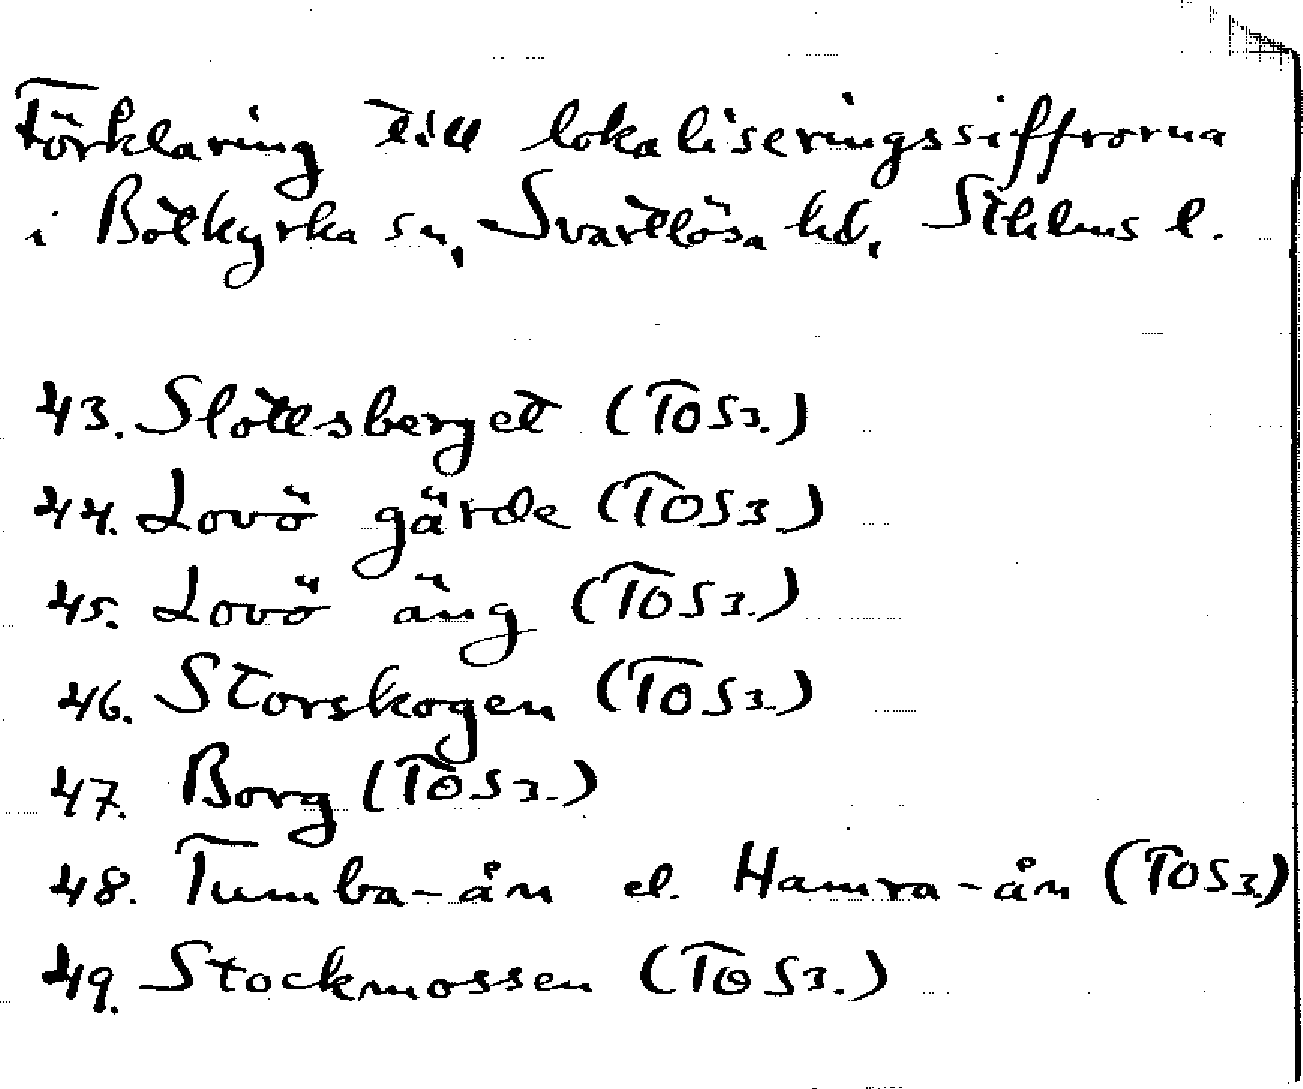 Förklaring till lokaliseringssiffrorna
i Botkyrka sn, Svartlösa hd, Sthlms l.
43. Slottsberget (TOS3.)
44. Lovö gärde (TOS3)
45. Lovö äng (TOS3.)
46. Storskogen (TOS3.)
47. Borg (TOS3.)
48. Tumba-ån el. Hamra-ån (TOS3.)
49. Stockmossen (TOS3.)